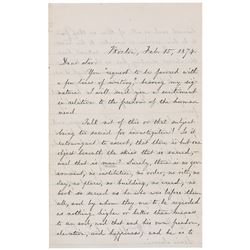 Boston, Feb. 15, 1874.
Dear Sir:
You "request to be favored with
a few lines of writing," bearing my sig-
nature. I will send you a sentiment
in relation to the freedom of the human
mind.
Talk not of this or that subject
being too sacred for investigation! Is it
extravagant to assert, that there is but one
object beneath the skies that is sacred,
and that is man? Surely, there is no gov-
ernment, no institution, no order, no rite, no
day, no place, no building, no creed, no
book so sacred as he who was before them
all, and by whom they are to be regarded
as nothing higher or better than means
to an end, and that end his own freedom,
elevation, and happiness; and he is to